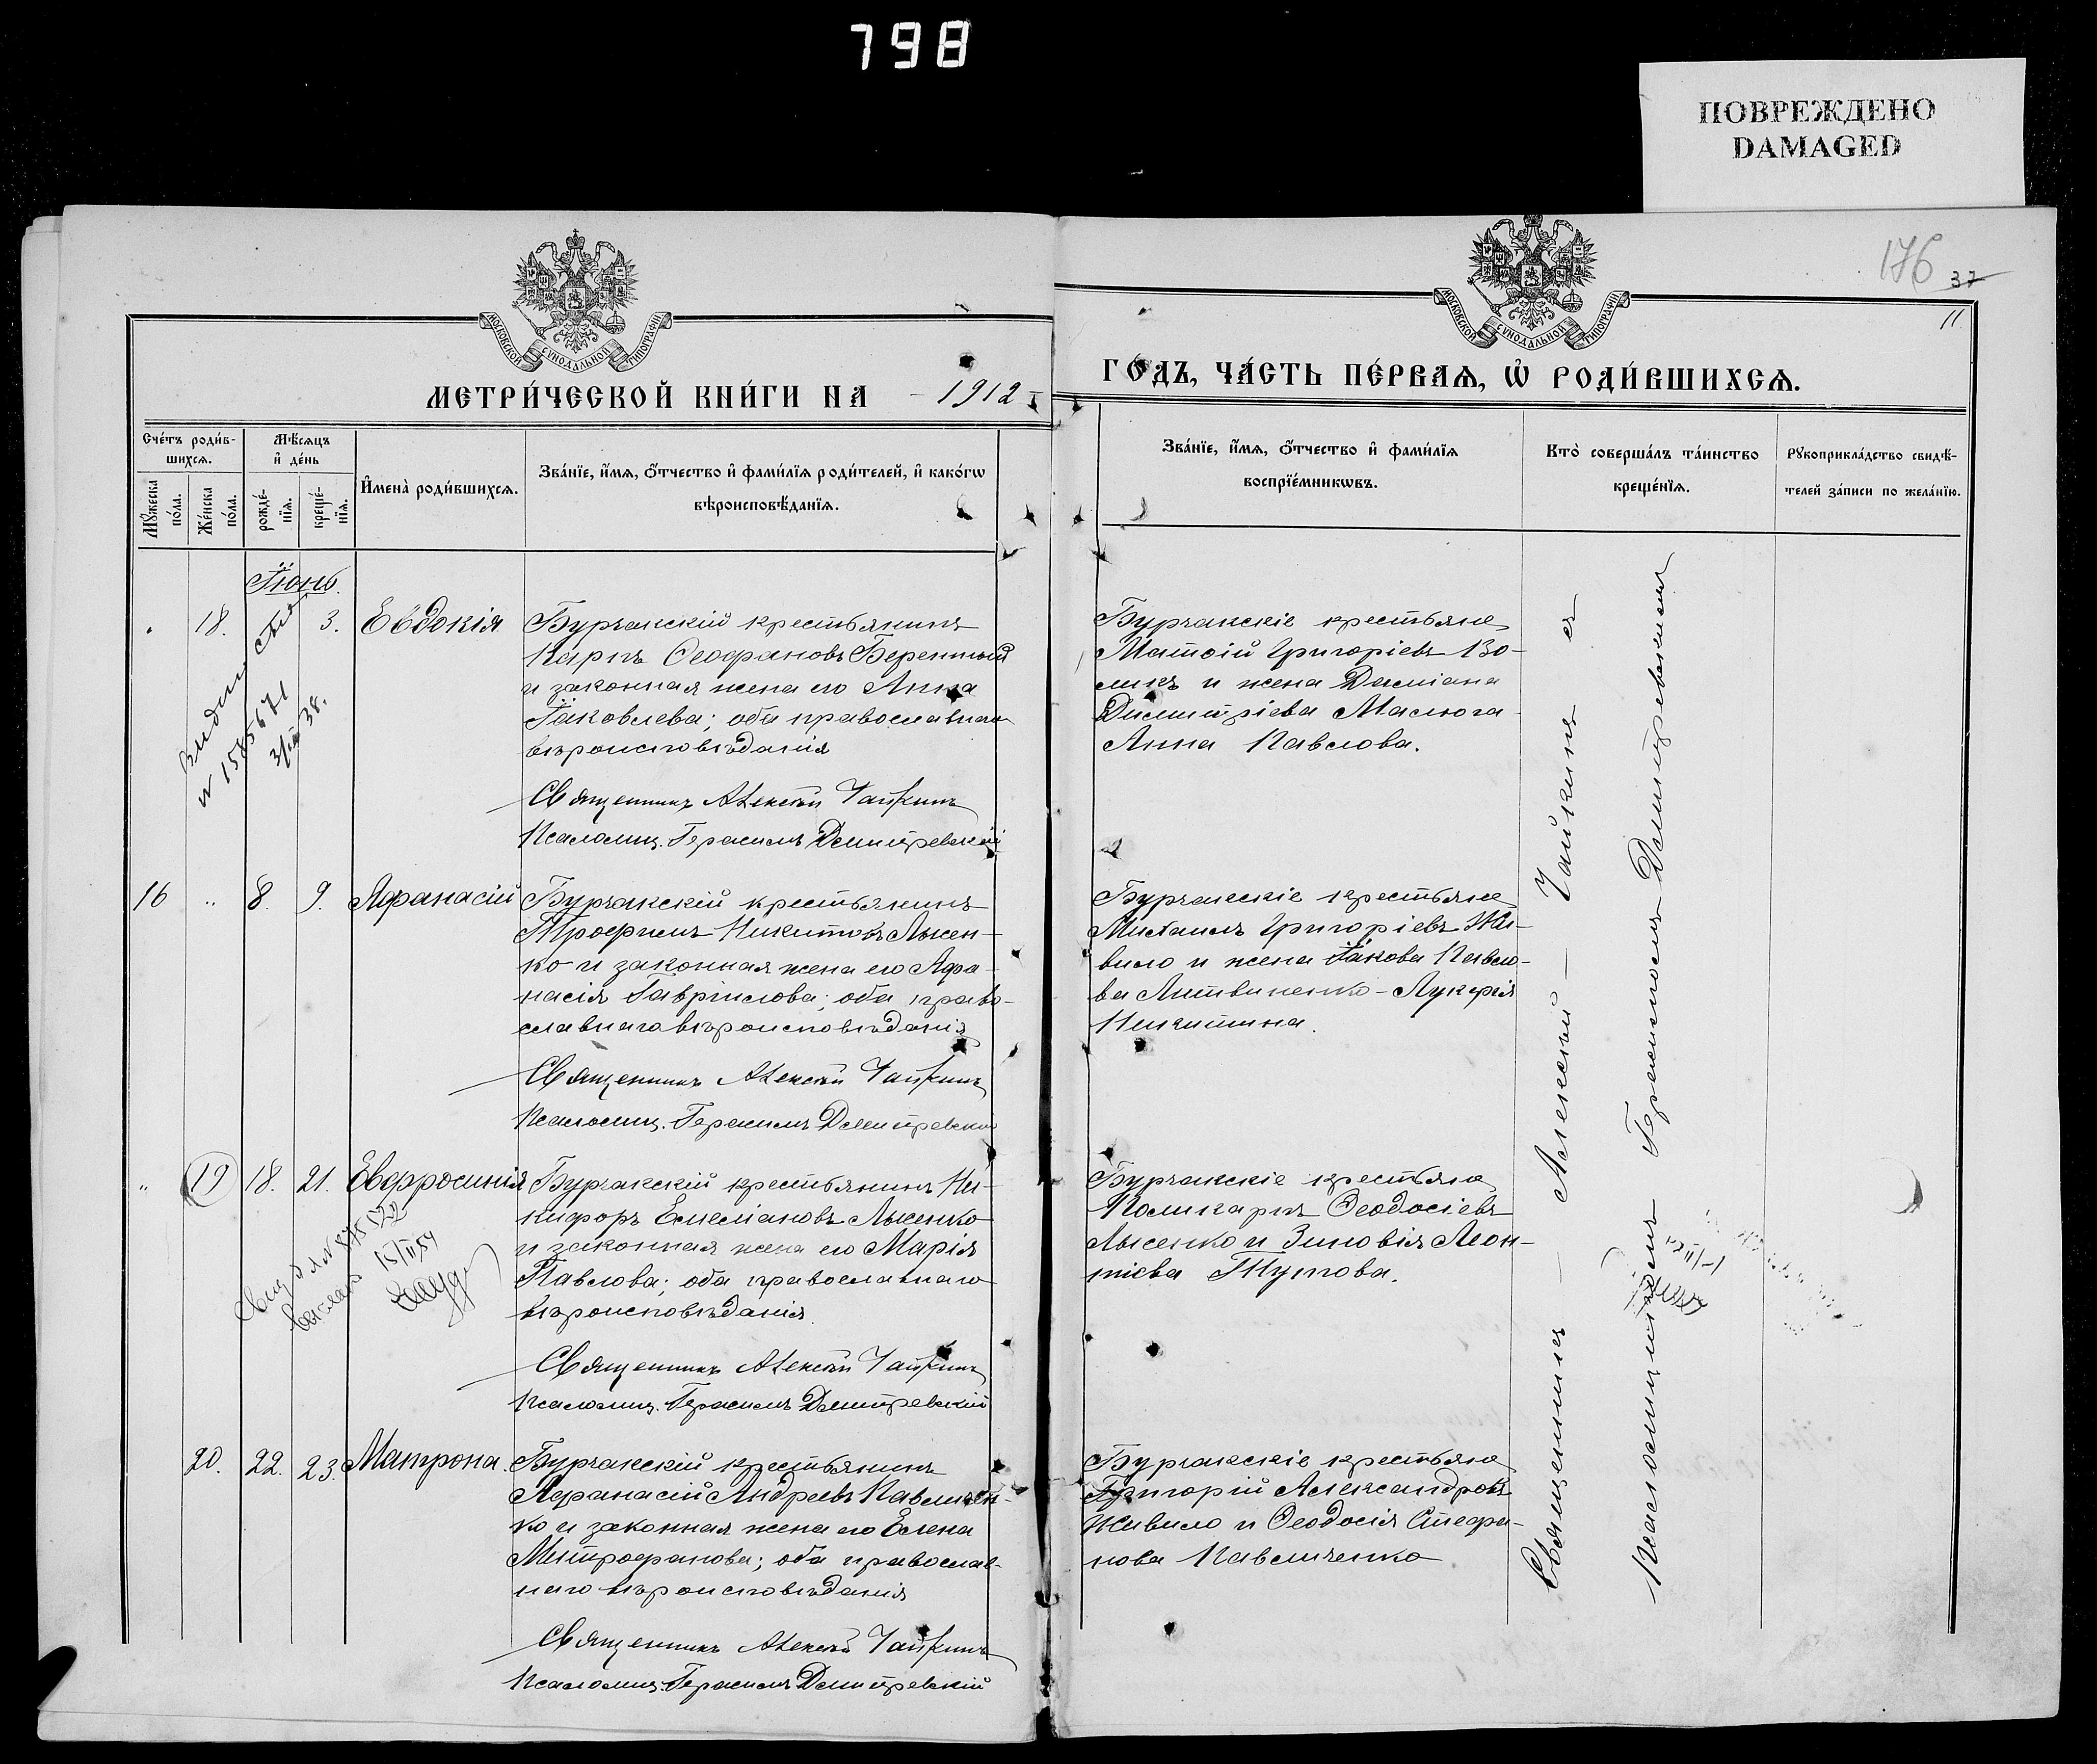 798
ПОВРЕЖДЕНО
DAMAGED
176
37
11
МОСКОВСКОЙ СѴНОДАЛЬНОЙ ТИПОГРАФІИ
МОСКОВСКОЙ СѴНОДАЛЬНОЙ ТИПОГРАФІИ
МЕТРИ́ЧЕСКОЙ КНИ́ГИ НА - 1912 -
ГО́ДЪ, ЧА́СТЬ ПЕ́РВАѦ, Ѡ҆ РОДИ́ВШИХСѦ.
Сче́тъ роди́в-
шихсѧ.
Мꙋ́жеска по́ла.
Же́нска по́ла.
Мѣ́сѧцъ
и҆ де́нь
рожде́-
нїѧ.
креще́-
нїѧ.
И҆мена̀ роди́вшихсѧ.
Зва́нїе, и҆́мѧ, ѻ҆́тчество и҆ фами́лїѧ роди́телей, и҆ како́гѡ
вѣроисповѣ́данїѧ.
Зва́нїе, и҆́мѧ, ѻ҆́тчество и҆ фами́лїѧ
воспрїе́мникѡвъ.
Кто̀ соверша́лъ та́инство
креще́нїѧ.
Рꙋкоприкла́дство свидѣ́-
телей за́писи по жела́нїю.
Іюнь.
18. 3. Евдокія
Бурчакскій крестьянинъ
Карпъ Ѳеофановъ
и законная жена его Анна
Іаковлева; оба православнаго
вѣроисповѣданія
Священникъ Алексѣй Чайкинъ
Псаломщ. Герасимъ Дмитревскій
Бурчакскіе крестьяне
Матѳій Григоріевъ Во-
ликъ и жена Даміана
Димитріева Маслюга
Анна Павлова.
№ 1585671
16 " 8. 9. Афанасій
Бурчакскій крестьянинъ
Трофимъ Никитовъ Лысен-
ко и законная жена его Афа-
насія Гавріилова; оба право-
славнаго вѣроисповѣданія
Священникъ Алексѣй Чайкинъ
Псаломщ. Герасимъ Дмитревскій
Бурчакскіе крестьяне
Михаилъ Григоріевъ Жи-
вило и жена Іакова Павло-
ва Литвиненко - Лукерія
Никитина.
" 19 18. 21. Евфросинія
Бурчакскій крестьянинъ Ни-
кифоръ Емеліановъ Лысенко
и законная жена его Марія
Павлова; оба православнаго
вѣроисповѣданія.
Священникъ Алексѣй Чайкинъ
Псаломщ. Герасимъ Дмитревскій
Бурчакскіе крестьяне
Поликарпъ Ѳеодосіевъ
Лысенко и Зиновія Леон-
тіева
20. 22. 23. Матрона
Бурчакскій крестьянинъ
Афанасій Андреевъ Павличен-
ко и законная жена его Елена
Митрофанова; оба православ-
наго вѣроисповѣданія
Священникъ Алексѣй Чайкинъ
Псаломщ. Герасимъ Дмитревскій
Бурчакскіе крестьяне
Григорій Александровъ
Живило и Ѳеодосія Стефа-
нова Павличенко
Священникъ - Алексѣй - Чайкинъ съ
Псаломщикомъ Герасимомъ Дмитревскимъ